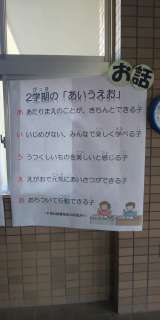 お話
2学期の「あいうえお」
あ あたりまえのことが、きちんとできる子
い いじめがない、みんなで楽しく学べる子
う うつくしいものを美しいと感じる子
え えがおで元気にあいさつができる子
お おちついて行動できる子